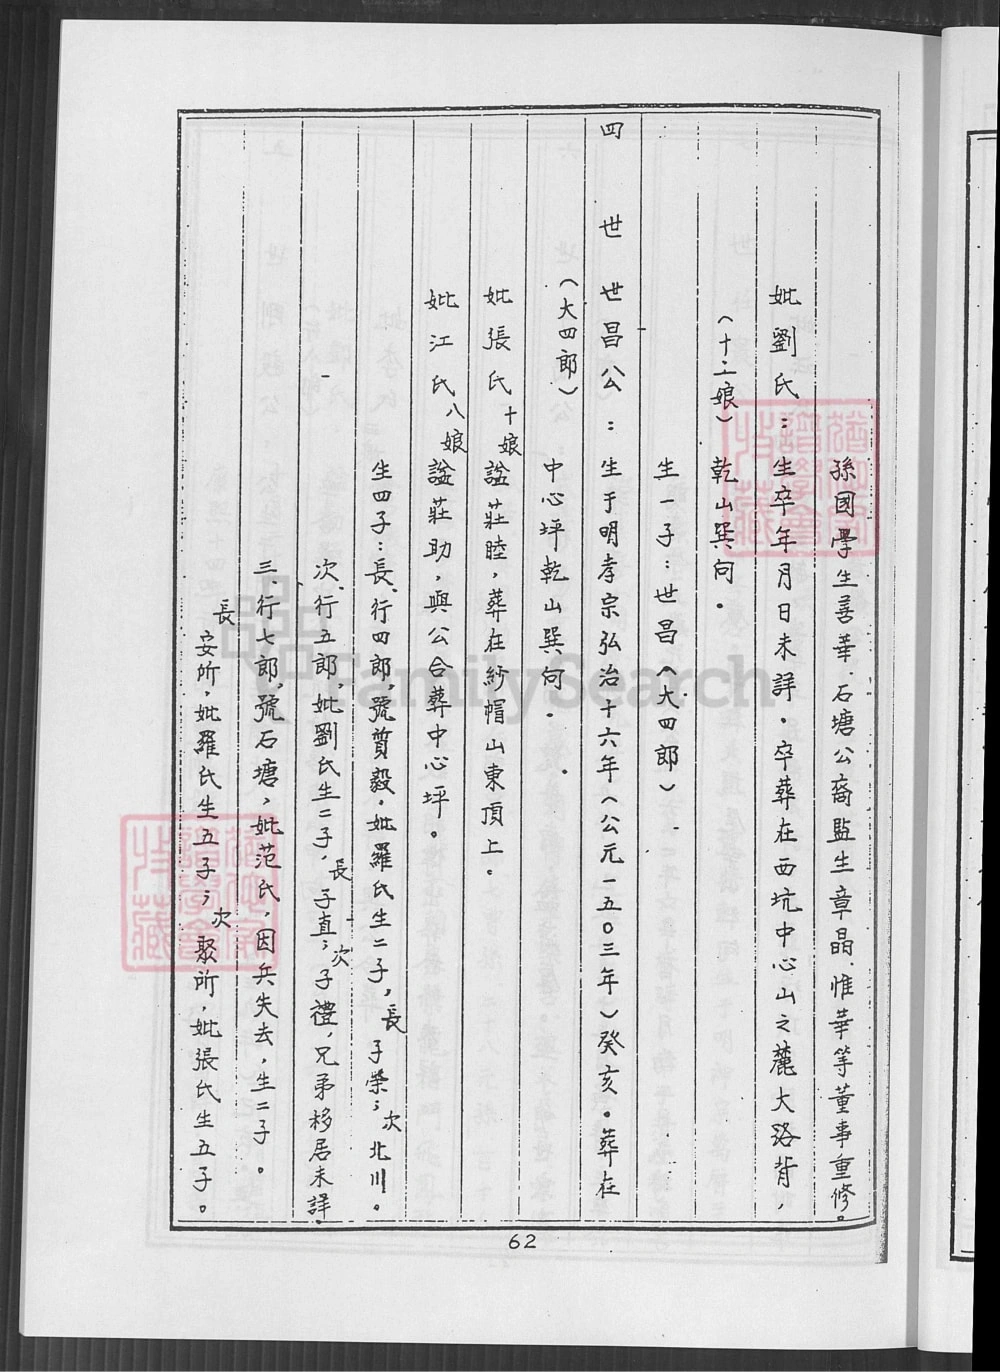 孫國學生善華.石塘公裔監生章晶.惟華等董事重修。
妣劉氏：生卒年月日未詳．卒葬在西坑中心山之麓大路背，
（十二娘）乾山巽向．
生一子：世昌（大四郎）
四世 世昌公：生于明孝宗弘治十六年（公元一五〇三年）癸亥．葬在
（大四郎）中心坪乾山巽向．
妣張氏十娘諡莊睦，葬在紗帽山東頂上。
妣江氏八娘諡莊助，與公合葬中心坪。
生四子：長、行四郎，號質毅，妣羅氏生二子，長子榮；次北川。
次、行五郎，妣劉氏生二子，長子直；次子禮，兄弟移居未詳．
三、行七郎，號石塘，妣范氏，因兵失去，生二子。
長安所，妣羅氏生五子；次聚所，妣張氏生五子。
62
FamilySearch